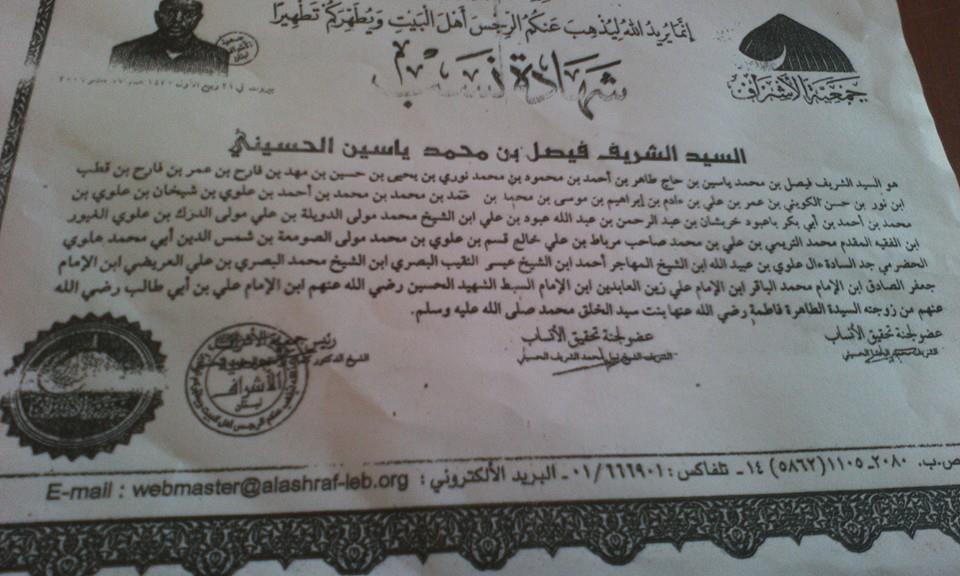 إنما يريد الله ليذهب عنكم الرجس أهل البيت ويطهركم تطهيرا
جمعية الأشراف
شهادة نسب
بيروت في ٢١ ربيع الأول ١٤٣٠
السيد الشريف فيصل بن محمد ياسين الحسيني
هو السيد الشريف فيصل بن محمد ياسين بن حاج طاهر بن أحمد بن محمود بن محمد نوري بن يحيى بن حسين بن مهد بن فارح بن عمر بن فارح بن قطب
ابن نور بن حسن الكويتي بن عمر بن علي بن مادم بن إبراهيم بن موسى بن محمد بن محمد بن محمد بن محمد بن أحمد بن علوي بن شيخان بن علوي بن
محمد بن أحمد بن أبي بكر باعبود خربشان بن عبد الرحمن بن عبد الله عبود بن علي ابن الشيخ محمد مولى الدويلة بن علي مولى الدرك بن علوي الغيور
ابن الفقيه المقدم محمد التريمي بن علي بن محمد صاحب مرباط بن علي خالع قسم بن علوي بن محمد مولى الصومعة بن شمس الدين أبي محمد علوي
الحضرمي جد السادة ءال علوي بن عبيد الله ابن الشيخ المهاجر أحمد ابن الشيخ عيسى النقيب البصري ابن الشيخ محمد البصري بن علي العريضي ابن الإمام
جعفر الصادق ابن الإمام محمد الباقر ابن الإمام علي زين العابدين ابن الإمام السبط الشهيد الحسين رضي الله عنهم ابن الإمام علي بن أبي طالب رضي الله
عنهم من زوجته السيدة الطاهرة فاطمة رضي الله عنها بنت سيد الخلق محمد صلى الله عليه وسلم.
عضو لجنة تحقيق الأنساب
عضو لجنة تحقيق الأنساب
الشريف الشيخ نبيل محمد الشريف الحسيني
رئيس جمعية الأشراف
الشيخ الدكتور
الأشراف
لبنان
ص.ب. ٢٠٨٠-١١٠٥ (٥٨٦٢) ١٤ - تلفاكس: ٠١/٦٦٦٩٠١ - البريد الألكتروني: E-mail : webmaster@alashraf-leb.org